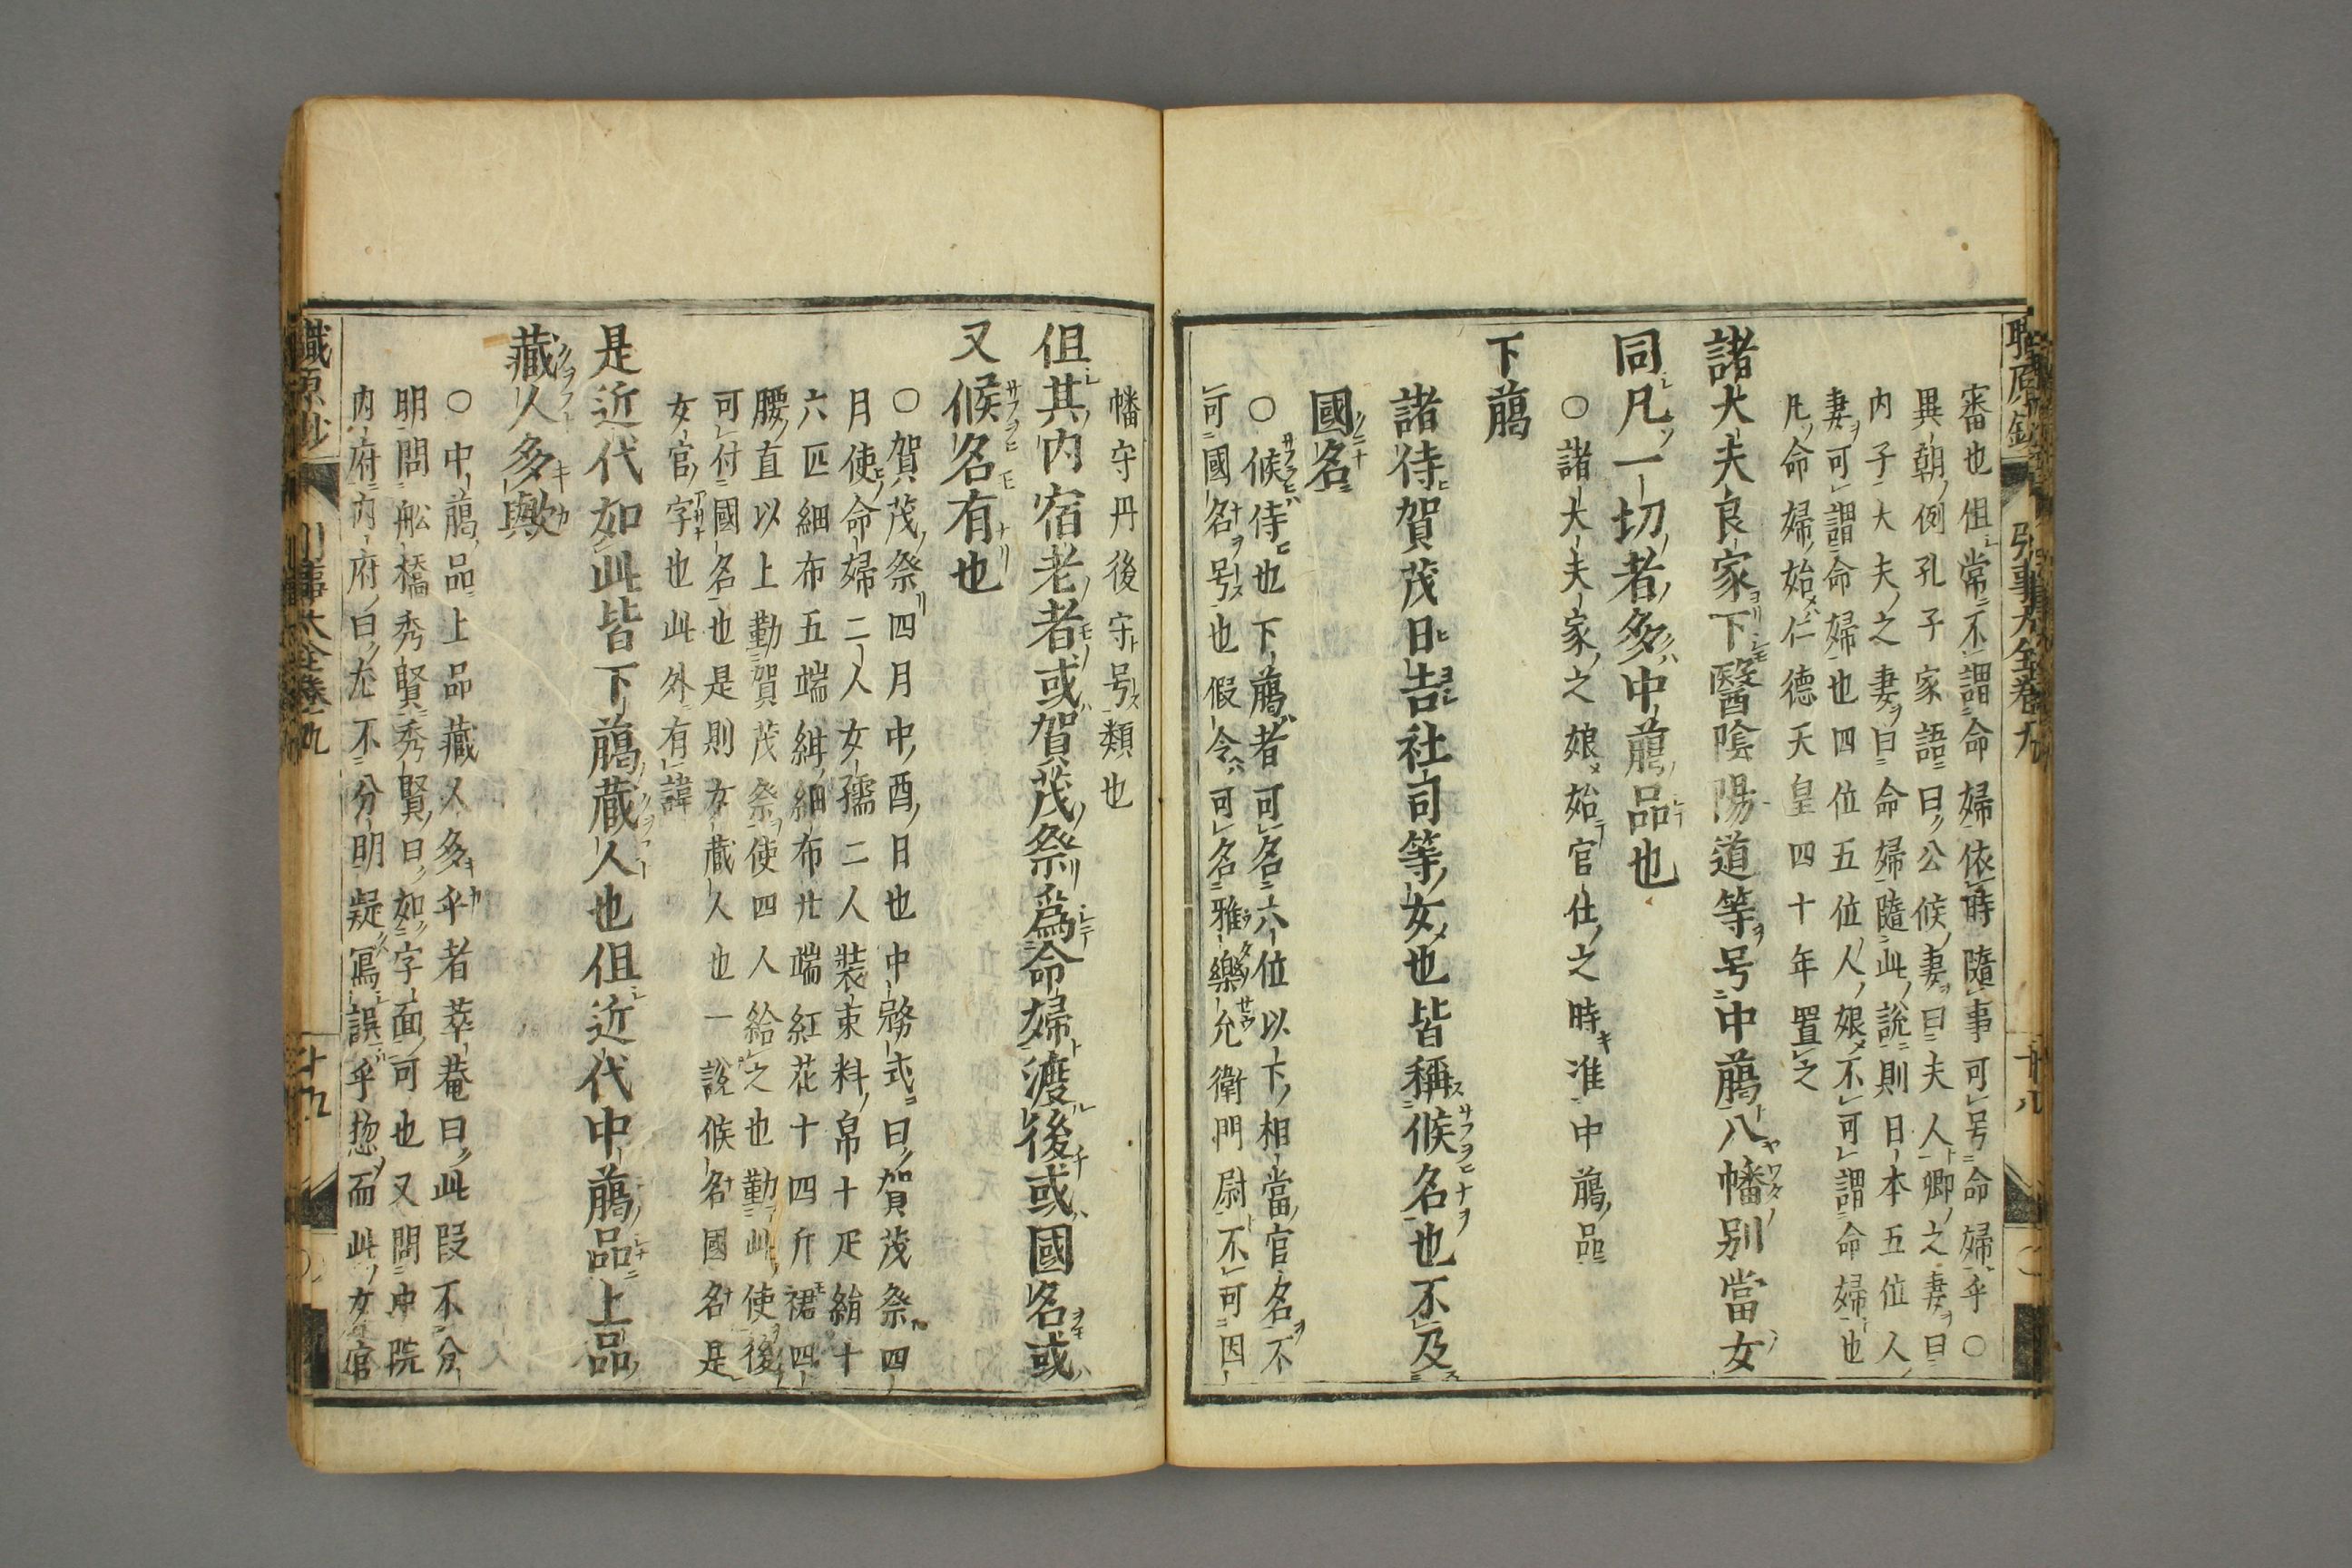 審也但常不謂命婦依時隨事可号命婦乎〇
異朝例孔子家語曰公候妻曰夫人卿之妻曰
内子大夫之妻曰命婦隨此説則日本五位人
妻可謂命婦也四位五位人娘不可謂命婦也
凡命婦始仁德天皇四十年置之
諸大夫良家下醫陰陽道等号中﨟八幡别當女
同凡一切者多中﨟品也
〇諸大夫家之娘始官仕之時准中﨟品
下﨟
諸侍賀茂日吉社司等女也皆稱候名也不及
國名
〇候侍也下﨟者可名六位以下相當官名不
可國名号也假令可名雅樂允衛門尉不可因
幡守丹後守号類也
但其内宿老者或賀茂祭爲命婦渡後或國名或
又候名有也
〇賀茂祭四月中酉日也中務式曰賀茂祭四
月使命婦二人女孺二人裝束料帛十疋絹十
六匹細布五端緋細布廿端紅花十四斤裙四
腰直以上勤賀茂祭使四人給之也勤此使後
可付國名也是則女蔵人也一説候名國名是
女官字也此外有諱
是近代如此皆下﨟蔵人也但近代中﨟品上品
藏人多歟
〇中﨟品上品藏人多乎者萃菴曰此段不分
明問舩橋秀賢秀賢曰如字面可也又問中院
内府内府曰尤不分明疑寫誤乎惣而此女官
職原鈔
引事大全卷九
十八
職原抄
引事大全卷九
十九